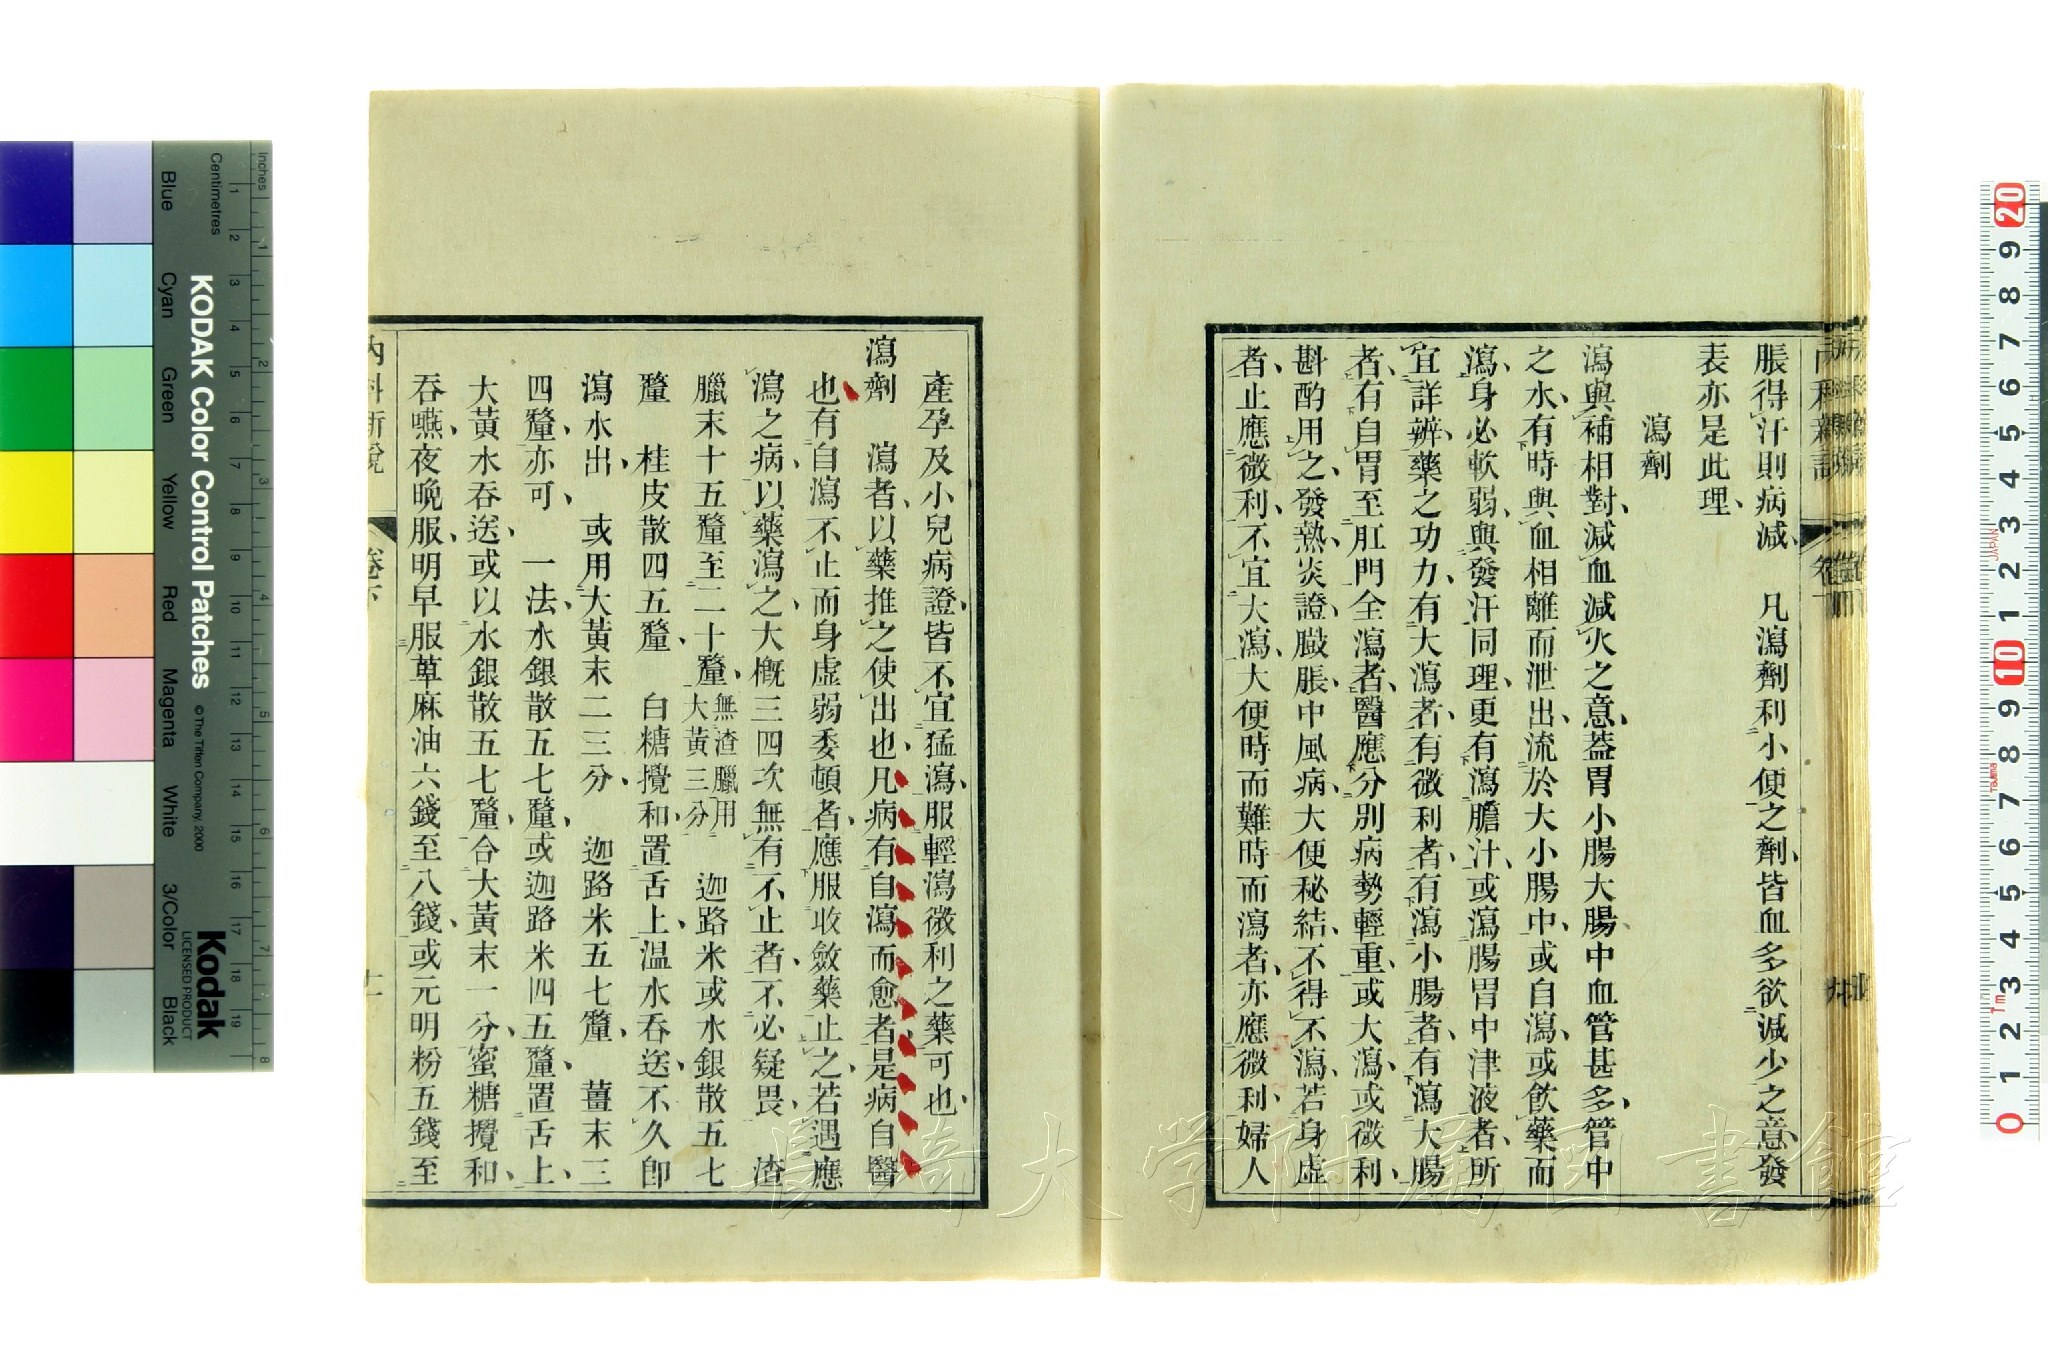 脹得汗則病減、凡瀉劑利小便之劑、皆血多欲減少之意、發
表亦是此理、
瀉劑
瀉與補相對、減血減火之意、蓋胃小腸大腸中血管甚多、管中
之水、有時與血相離而泄出、流於大小腸中、或自瀉、或飲藥而
瀉、身必軟弱、與發汗同理、更有瀉膽汁、或瀉腸胃中津液者、所
宜詳辨、藥之功力、有大瀉者、有微利者、有瀉小腸者、有瀉大腸
者、有自胃至肛門全瀉者、醫應分別病勢輕重、或大瀉、或微利、
斟酌用之、發熱炎證、臌脹、中風病、大便秘結、不得不瀉、若身虛
者、止應微利、不宜大瀉、大便時而難時而瀉者、亦應微利、婦人
產孕及小兒病證、皆不宜猛瀉、服輕瀉微利之藥可也、
瀉劑 瀉者、以藥推之使出也、凡病有自瀉而愈者、是病自醫
也、有自瀉不止而身虛弱委頓者、應服收斂藥止之、若遇應
瀉之病、以藥瀉之、大概三四次、無有不止者、不必疑畏、 渣
臘末十五釐至二十釐、無渣臘用大黃三分 迦路米或水銀散五七
釐 桂皮散四五釐、 白糖攪和、置舌上、溫水吞送、不久卽
瀉水出、 或用大黃末二三分、 迦路米五七釐、 薑末三
四釐、亦可、 一法、水銀散五七釐、或迦路米四五釐、置舌上、
大黃水吞送、或以水銀散五七釐、合大黃末一分、蜜糖攪和、
吞嚥、夜晚服、明早服萆麻油六錢至八錢、或元明粉五錢至
內科新說
卷下
十一
KODAK Color Control Patches
© The Tiffen Company, 2000
Kodak
LICENSED PRODUCT
Inches
Centimetres
Blue
Cyan
Green
Yellow
Red
Magenta
White
3/Color
Black
長崎大学附属図書館